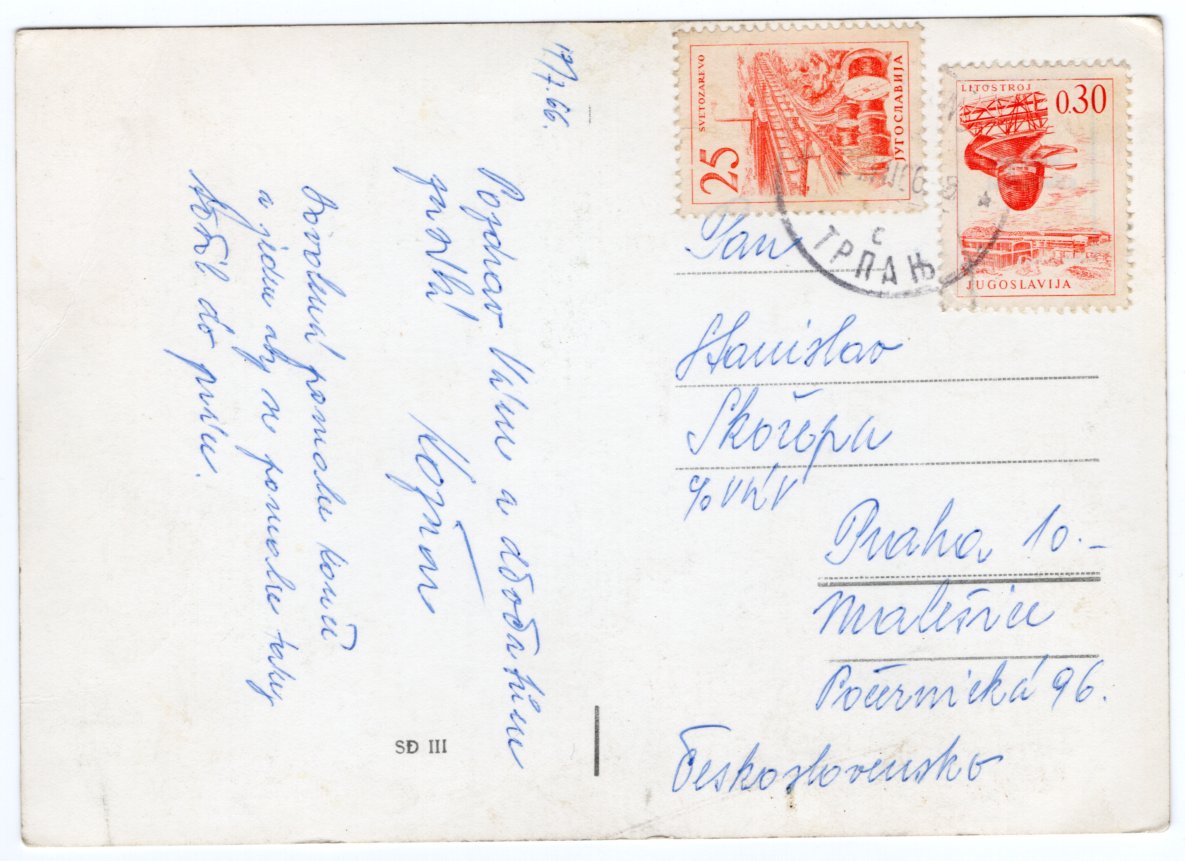 17/7.66.
Pozdrav Vám a
Kopřiv
Dovolená pomalu končí
a jedu aby ne pomalu taky
do práce.
SĐ III
SVETOZAREVO
25
ЈУГОСЛАВИЈА
LITOSTROJ
0.30
JUGOSLAVIJA
С
ТРПАЊ
Pan
Stanislav
Skořepa
c/o VKV
Praha 10.-
Malešice
Počernická 96.
Československo